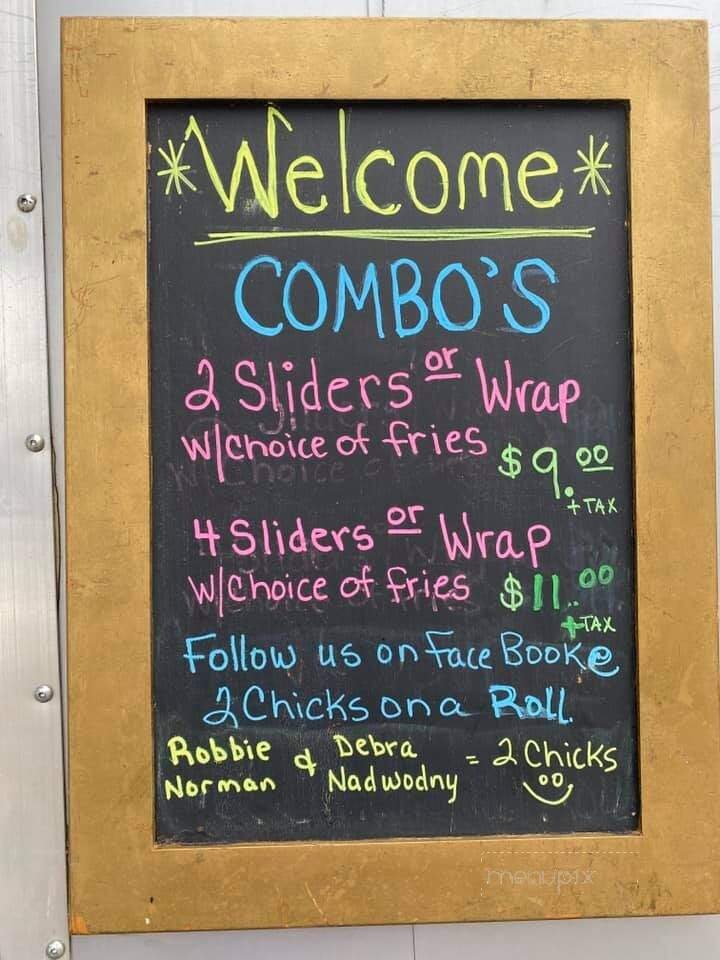 *Welcome*
COMBO'S
2 Sliders or Wrap
w/choice of fries $9.00
+ TAX
4 Sliders or Wrap
w/choice of fries $11.00
+TAX
Follow us on Face Book@
2 Chicks on a Roll.
Robbie Norman & Debra Nadwodny = 2 Chicks
menupix